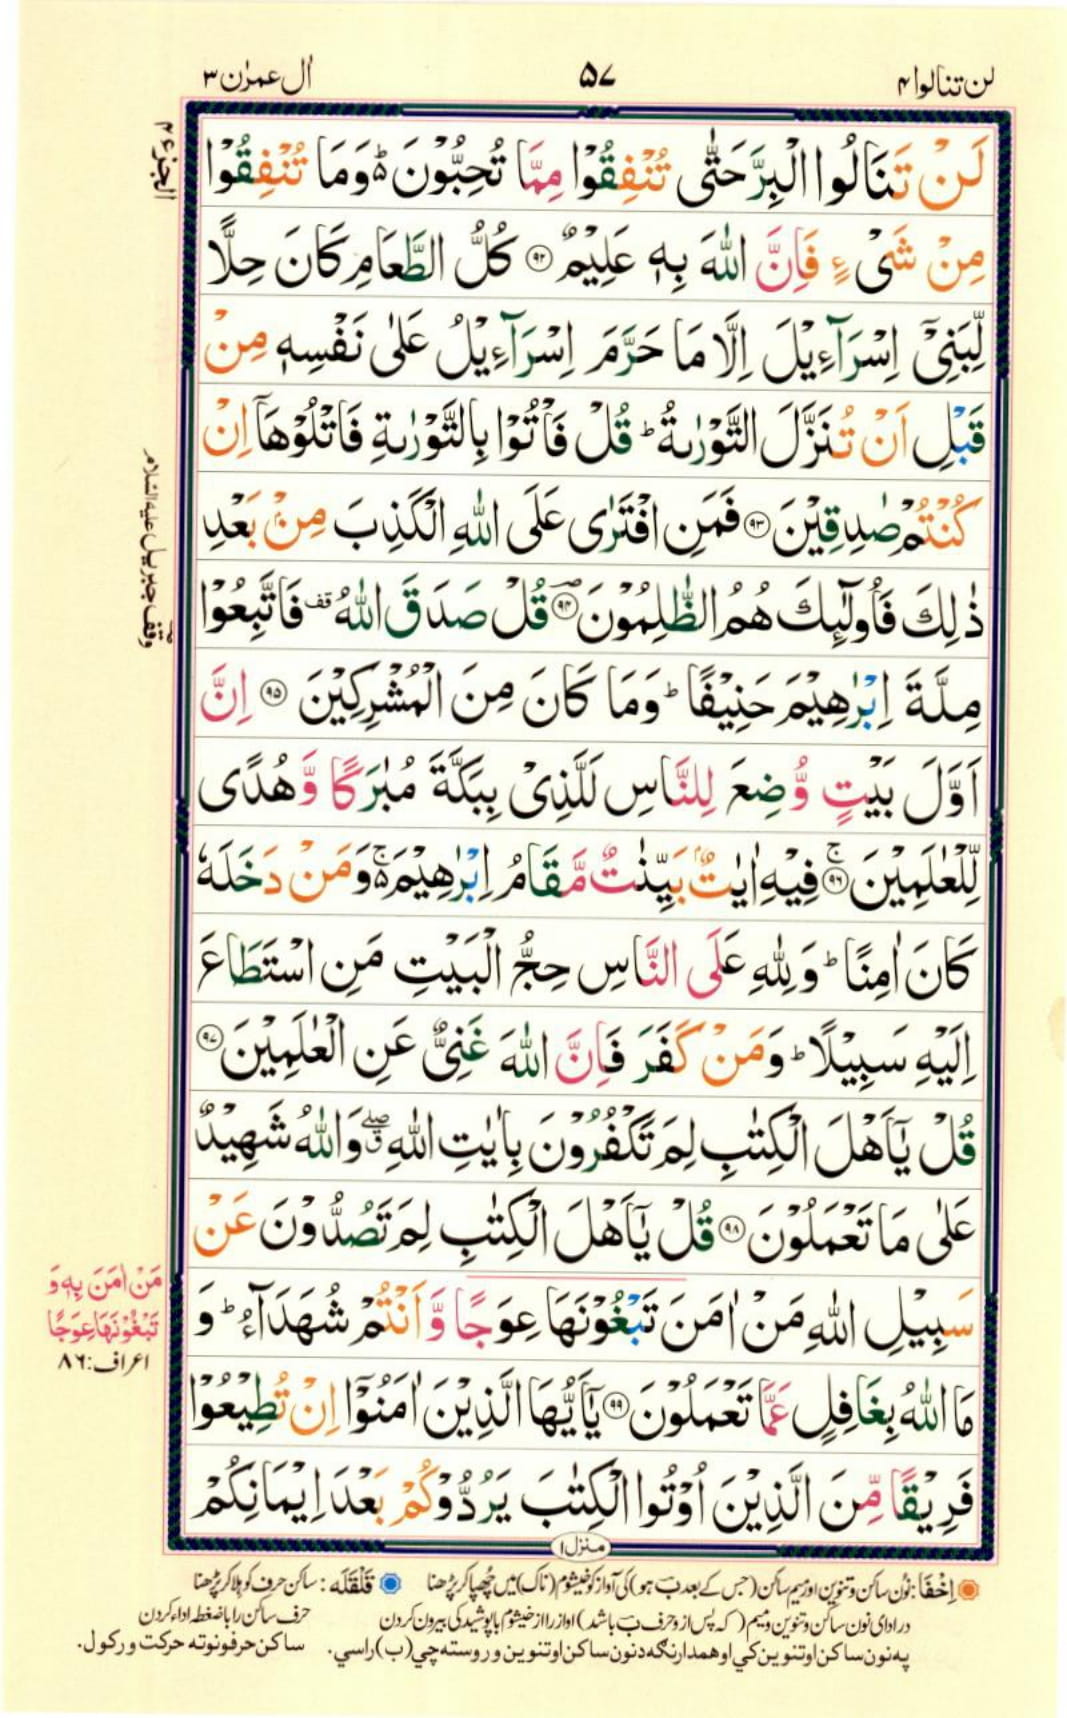 لن تنالوا ۴
۵۷
اٰل عمرٰن ۳
الجزء ۴
لَنْ تَنَالُوا الْبِرَّ حَتّٰى تُنْفِقُوْا مِمَّا تُحِبُّوْنَ ؕ۬ وَمَا تُنْفِقُوْا
مِنْ شَىْءٍ فَاِنَّ اللّٰهَ بِهٖ عَلِيْمٌ ﴿۹۲﴾ كُلُّ الطَّعَامِ كَانَ حِلًّا
لِّبَنِىْٓ اِسْرَآءِيْلَ اِلَّا مَا حَرَّمَ اِسْرَآءِيْلُ عَلٰى نَفْسِهٖ مِنْ
قَبْلِ اَنْ تُنَزَّلَ التَّوْرٰىةُ ؕ قُلْ فَاْتُوْا بِالتَّوْرٰىةِ فَاتْلُوْهَآ اِنْ
كُنْتُمْ صٰدِقِيْنَ ﴿۹۳﴾ فَمَنِ افْتَرٰى عَلَى اللّٰهِ الْكَذِبَ مِنْۢ بَعْدِ
ذٰلِكَ فَاُولٰٓئِكَ هُمُ الظّٰلِمُوْنَ ﴿۹۴﴾ قُلْ صَدَقَ اللّٰهُ قف فَاتَّبِعُوْا
وقف جبریل علیه السّلام
مِلَّةَ اِبْرٰهِيْمَ حَنِيْفًا ؕ وَمَا كَانَ مِنَ الْمُشْرِكِيْنَ ﴿۹۵﴾ اِنَّ
اَوَّلَ بَيْتٍ وُّضِعَ لِلنَّاسِ لَلَّذِىْ بِبَكَّةَ مُبٰرَكًا وَّهُدًى
لِّلْعٰلَمِيْنَ ﴿۹۶﴾ۚ فِيْهِ اٰيٰتٌۢ بَيِّنٰتٌ مَّقَامُ اِبْرٰهِيْمَ ۚ۬ وَمَنْ دَخَلَهٗ
كَانَ اٰمِنًا ؕ وَلِلّٰهِ عَلَى النَّاسِ حِجُّ الْبَيْتِ مَنِ اسْتَطَاعَ
اِلَيْهِ سَبِيْلًا ؕ وَمَنْ كَفَرَ فَاِنَّ اللّٰهَ غَنِىٌّ عَنِ الْعٰلَمِيْنَ ﴿۹۷﴾
قُلْ يٰٓاَهْلَ الْكِتٰبِ لِمَ تَكْفُرُوْنَ بِاٰيٰتِ اللّٰهِ ۖۗ وَاللّٰهُ شَهِيْدٌ
عَلٰى مَا تَعْمَلُوْنَ ﴿۹۸﴾ قُلْ يٰٓاَهْلَ الْكِتٰبِ لِمَ تَصُدُّوْنَ عَنْ
سَبِيْلِ اللّٰهِ مَنْ اٰمَنَ تَبْغُوْنَهَا عِوَجًا وَّاَنْتُمْ شُهَدَآءُ ؕ وَ
مَنْ اٰمَنَ بِهٖ وَ
تَبْغُوْنَهَا عِوَجًا
اعراف: ۸۶
مَا اللّٰهُ بِغَافِلٍ عَمَّا تَعْمَلُوْنَ ﴿۹۹﴾ يٰٓاَيُّهَا الَّذِيْنَ اٰمَنُوْٓا اِنْ تُطِيْعُوْا
فَرِيْقًا مِّنَ الَّذِيْنَ اُوْتُوا الْكِتٰبَ يَرُدُّوْكُمْ بَعْدَ اِيْمَانِكُمْ
منزل ۱
اِخْفَا: نُون ساکن و تنوین اور میم ساکن (جس کے بعد ب ہو) کی آواز کو خیشوم (ناک) میں چُھپا کر پڑھنا قَلْقَلَه: ساکن حرف کو ہلا کر پڑھنا
در ادای نون ساکن و تنوین و میم ( که پس از و حرف ب باشد ) اواز را از خیشوم با پوشیدگی بیرون کردن حرف ساکن را با ضغطه اداء کردن
په نون ساکن او تنوین کي او همدارنګه د نون ساکن او تنوین وروسته چي (ب) راسي. ساکن حرفونو ته حرکت ورکول.